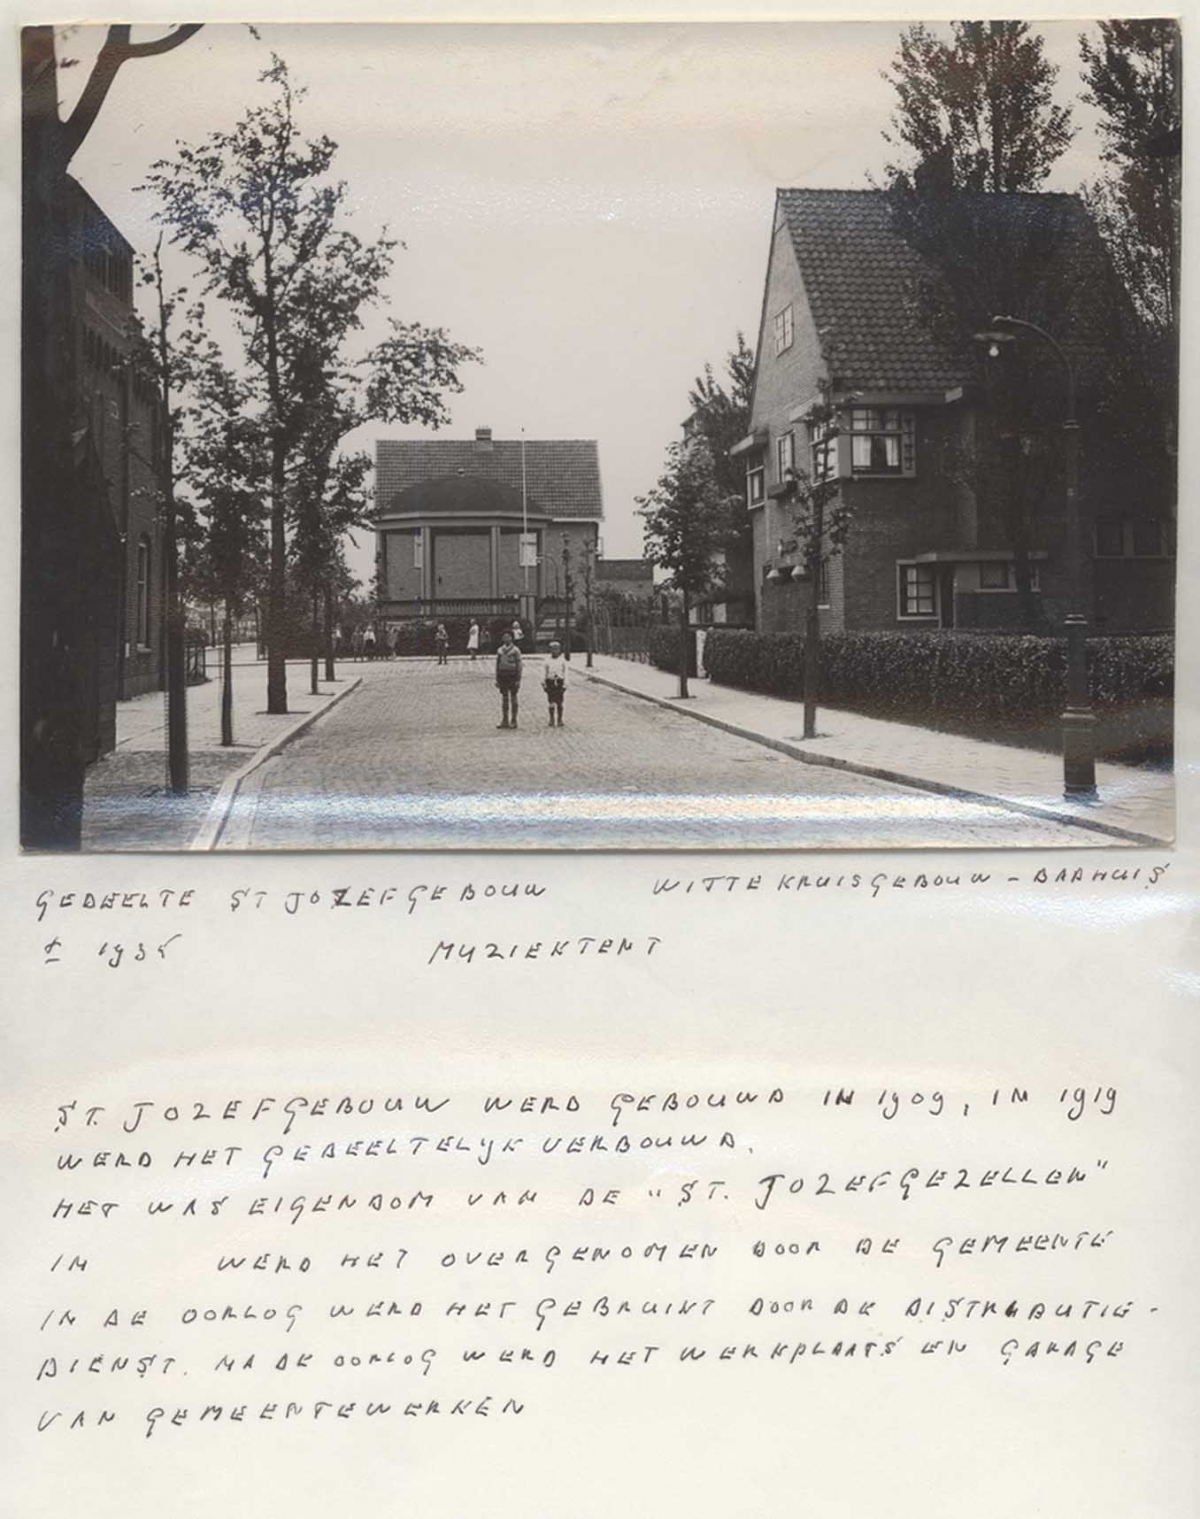 GEDEELTE ST JOZEFGEBOUW WITTE KRUISGEBOUW - BADHUIS
± 1935 MUZIEKTENT
ST. JOZEFGEBOUW WERD GEBOUWD IN 1909, IN 1919
WERD HET GEDEELTELYK VERBOUWD.
HET WAS EIGENDOM VAN DE "ST. JOZEFGEZELLEN"
IN WERD HET OVERGENOMEN DOOR DE GEMEENTE
IN DE OORLOG WERD HET GEBRUIKT DOOR DE DISTRIBUTIE-
DIENST. NA DE OORLOG WERD HET WERKPLAATS EN GARAGE
VAN GEMEENTEWERKEN